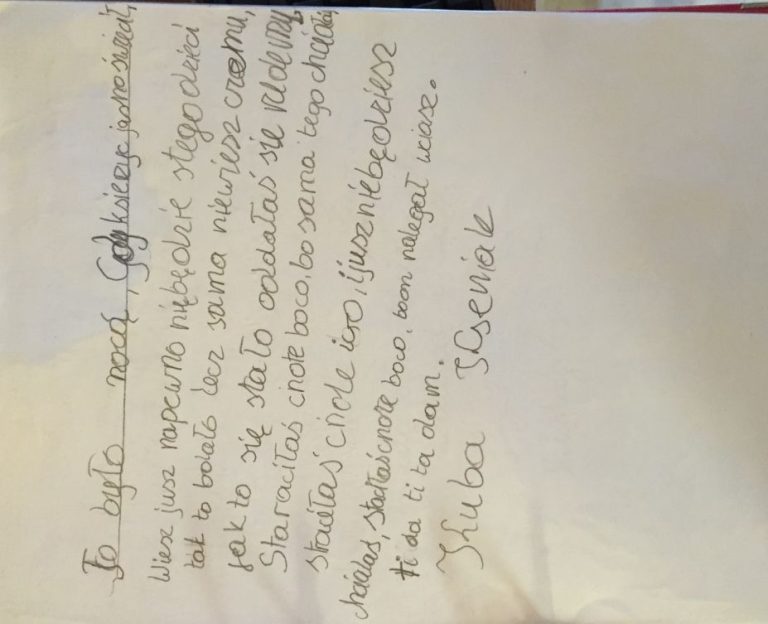 To było nocą, Gdy księzyc jasno świecił,
Wiesz jusz napewno niębędzie stego dzieci
tak to bolało lecz sama niewiesz czemu,
jak to się stało oddałaś się
Straciłaś cnote boco, bo sama tego chciała,
straciłaś cnote ijusz niebędziesz
chciałas, stadłaś cnote boco, boon nalegał wciasz.
ti da ti ta dam.
Kuba Kseniak